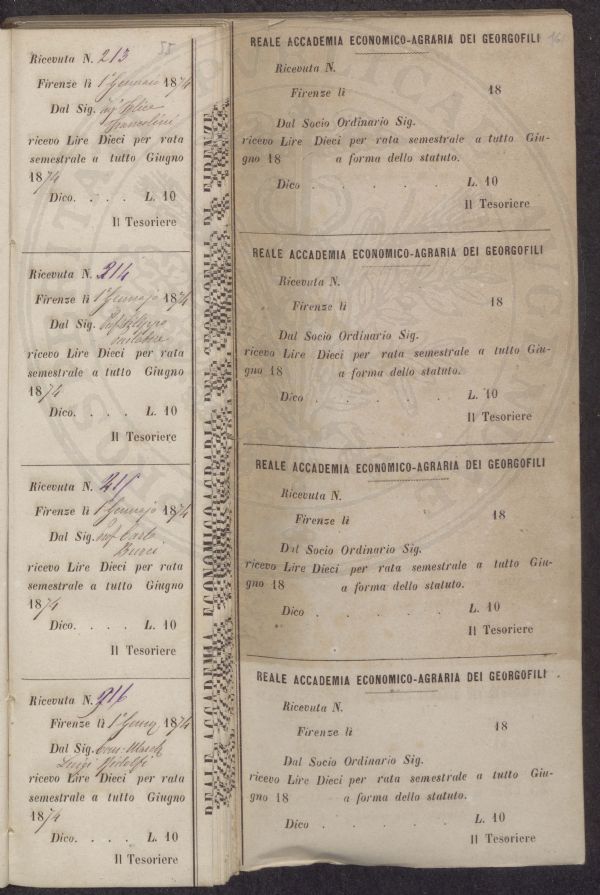 Ricevuta N. 213
Firenze lì 1° Gennaio 1874
Dal Sig.
ricevo Lire Dieci per rata
semestrale a tutto Giugno
1874
Dico. . . . L. 10
Il Tesoriere
Ricevuta N. 214
Firenze lì 1° Gennajo 1874
Dal Sig.
ricevo Lire Dieci per rata
semestrale a tutto Giugno
1874
Dico. . . . L. 10
Il Tesoriere
Ricevuta N. 215
Firenze lì 1° Gennajo 1874
Dal Sig. Prof Carlo
ricevo Lire Dieci per rata
semestrale a tutto Giugno
1874
Dico. . . . L. 10
Il Tesoriere
Ricevuta N. 216
Firenze lì 1° 1874
Dal Sig. March
Luigi Ridolfi
ricevo Lire Dieci per rata
semestrale a tutto Giugno
1874
Dico. . . . L. 10
Il Tesoriere
REALE ACCADEMIA ECONOMICO-AGRARIA DEI GEORGOFILI DI FIRENZE
REALE ACCADEMIA ECONOMICO-AGRARIA DEI GEORGOFILI
Ricevuta N.
Firenze lì 18
Dal Socio Ordinario Sig.
ricevo Lire Dieci per rata semestrale a tutto Giu-
gno 18 a forma dello statuto.
Dico . . . . . L. 10
Il Tesoriere
REALE ACCADEMIA ECONOMICO-AGRARIA DEI GEORGOFILI
Ricevuta N.
Firenze lì 18
Dal Socio Ordinario Sig.
ricevo Lire Dieci per rata semestrale a tutto Giu-
gno 18 a forma dello statuto.
Dico . . . . . L. 10
Il Tesoriere
REALE ACCADEMIA ECONOMICO-AGRARIA DEI GEORGOFILI
Ricevuta N.
Firenze lì 18
Dal Socio Ordinario Sig.
ricevo Lire Dieci per rata semestrale a tutto Giu-
gno 18 a forma dello statuto.
Dico . . . . . L. 10
Il Tesoriere
REALE ACCADEMIA ECONOMICO-AGRARIA DEI GEORGOFILI
Ricevuta N.
Firenze lì 18
Dal Socio Ordinario Sig.
ricevo Lire Dieci per rata semestrale a tutto Giu-
gno 18 a forma dello statuto.
Dico . . . . . L. 10
Il Tesoriere